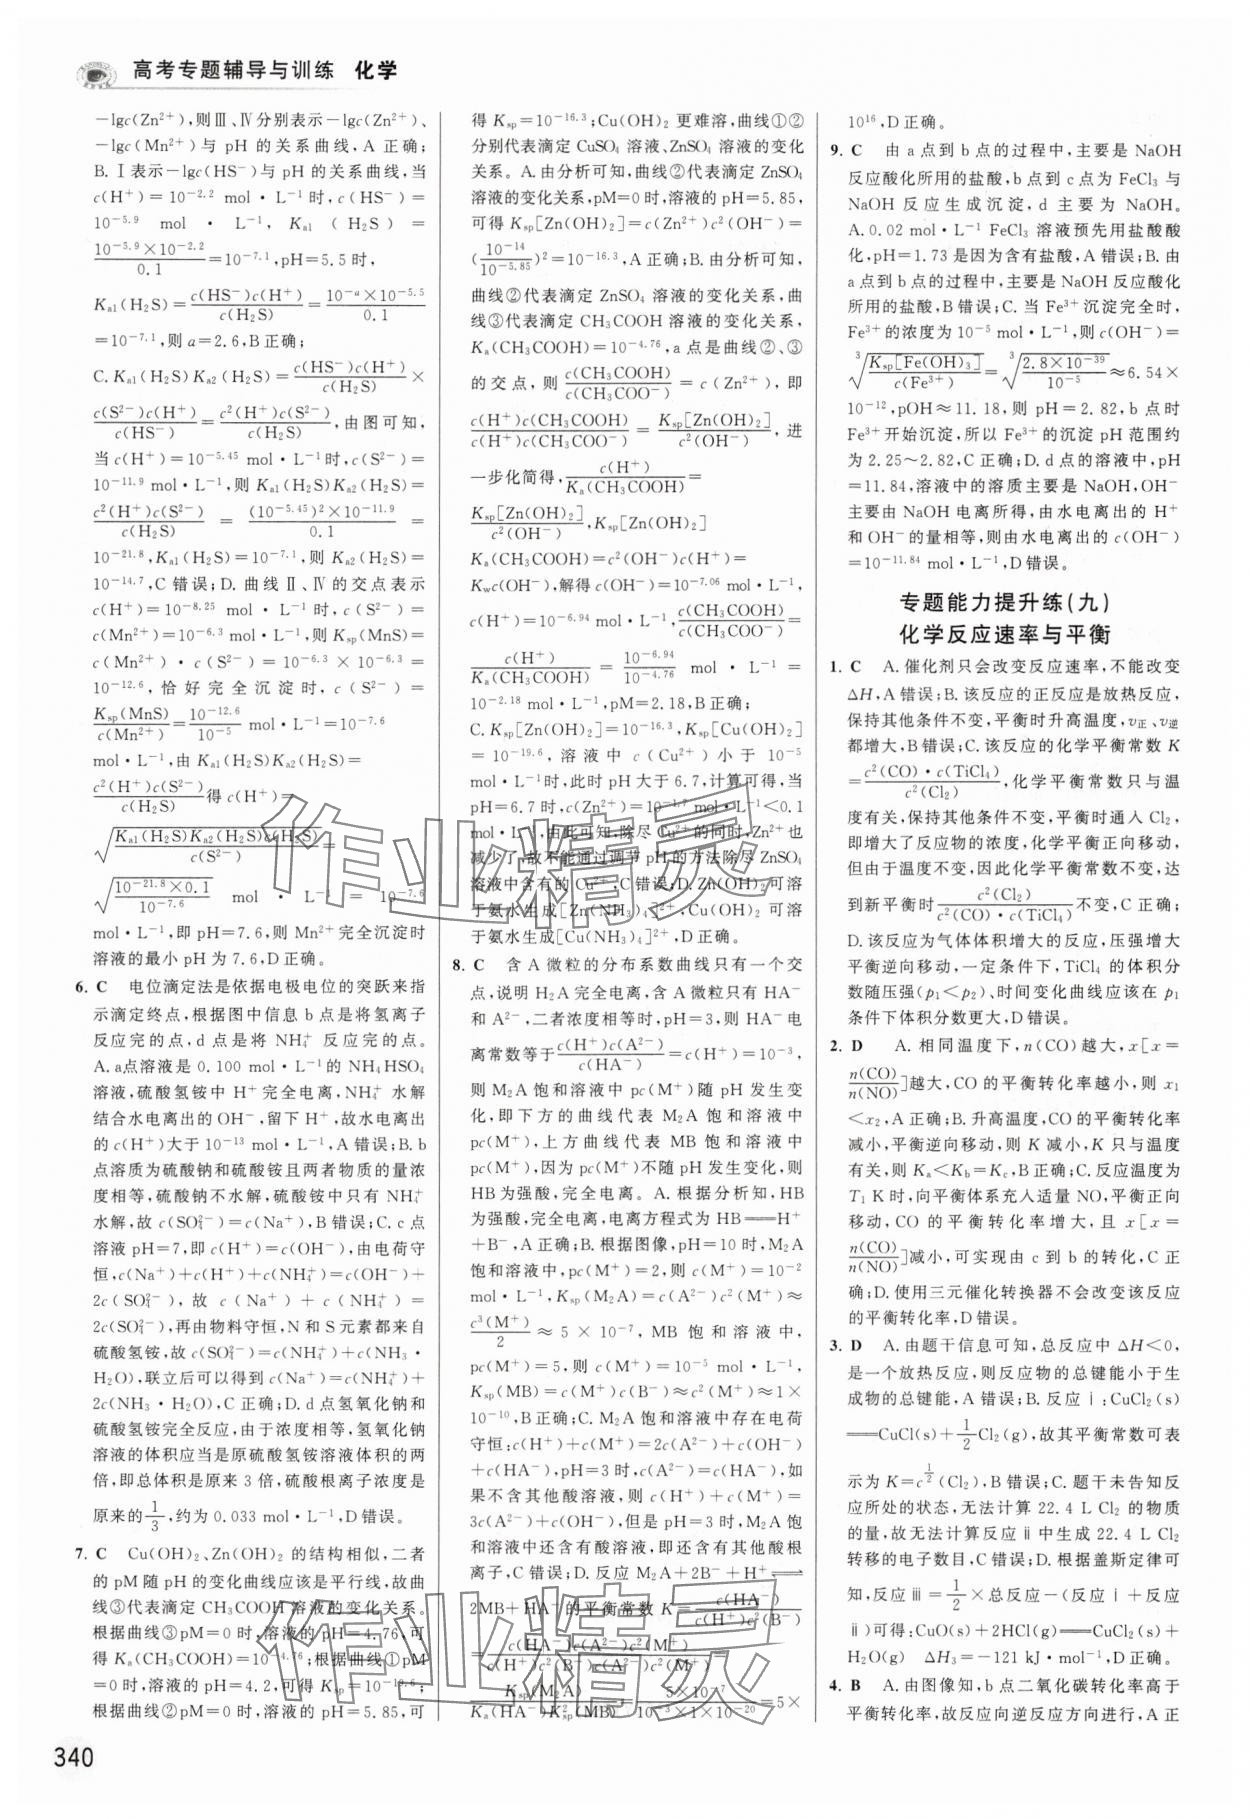 高考专题辅导与训练 化学
－lgc(Zn²⁺),则Ⅲ、Ⅳ分别表示－lgc(Zn²⁺)、
－lgc(Mn²⁺)与 pH 的关系曲线,A 正确;
B.Ⅰ表示－lgc(HS⁻)与 pH 的关系曲线,当
c(H⁺)=10⁻²·² mol·L⁻¹时,c(HS⁻)=
10⁻⁵·⁹ mol·L⁻¹, Kₐ₁(H₂S)=
(10⁻⁵·⁹×10⁻²·²)/0.1=10⁻⁷·¹,pH=5.5 时,
Kₐ₁(H₂S)=c(HS⁻)c(H⁺)/c(H₂S)=(10⁻ᵃ×10⁻⁵·⁵)/0.1
=10⁻⁷·¹,则 a=2.6,B正确;
C.Kₐ₁(H₂S)Kₐ₂(H₂S)=c(HS⁻)c(H⁺)/c(H₂S)×
c(S²⁻)c(H⁺)/c(HS⁻)=c²(H⁺)c(S²⁻)/c(H₂S),由图可知,
当 c(H⁺)=10⁻⁵·⁴⁵ mol·L⁻¹时,c(S²⁻)=
10⁻¹¹·⁹ mol·L⁻¹,则 Kₐ₁(H₂S)Kₐ₂(H₂S)=
c²(H⁺)c(S²⁻)/c(H₂S)=(10⁻⁵·⁴⁵)²×10⁻¹¹·⁹/0.1=
10⁻²¹·⁸,Kₐ₁(H₂S)=10⁻⁷·¹,则 Kₐ₂(H₂S)=
10⁻¹⁴·⁷,C 错误;D.曲线Ⅱ、Ⅳ的交点表示
c(H⁺)=10⁻⁸·²⁵ mol·L⁻¹时,c(S²⁻)=
c(Mn²⁺)=10⁻⁶·³ mol·L⁻¹,则 Ksp(MnS)=
c(Mn²⁺)·c(S²⁻)=10⁻⁶·³×10⁻⁶·³=
10⁻¹²·⁶,恰好完全沉淀时,c(S²⁻)=
Ksp(MnS)/c(Mn²⁺)=10⁻¹²·⁶/10⁻⁵ mol·L⁻¹=10⁻⁷·⁶
mol·L⁻¹,由 Kₐ₁(H₂S)Kₐ₂(H₂S)=
c²(H⁺)c(S²⁻)/c(H₂S)得 c(H⁺)=
√(Kₐ₁(H₂S)Kₐ₂(H₂S)c(H₂S)/c(S²⁻))=
√(10⁻²¹·⁸×0.1/10⁻⁷·⁶) mol·L⁻¹=10⁻⁷·⁶
mol·L⁻¹,即 pH=7.6,则 Mn²⁺完全沉淀时
溶液的最小 pH 为 7.6,D正确。
6. C 电位滴定法是依据电极电位的突跃来指
示滴定终点,根据图中信息 b 点是将氢离子
反应完的点,d 点是将 NH₄⁺ 反应完的点。
A.a点溶液是 0.100 mol·L⁻¹的 NH₄HSO₄
溶液,硫酸氢铵中 H⁺完全电离,NH₄⁺水解
结合水电离出的 OH⁻,留下 H⁺,故水电离出
的 c(H⁺)大于 10⁻¹³ mol·L⁻¹,A错误;B.b
点溶质为硫酸钠和硫酸铵且两者物质的量浓
度相等,硫酸钠不水解,硫酸铵中只有 NH₄⁺
水解,故 c(SO₄²⁻)=c(Na⁺),B错误;C.c 点
溶液 pH=7,即 c(H⁺)=c(OH⁻),由电荷守
恒,c(Na⁺)+c(H⁺)+c(NH₄⁺)=c(OH⁻)+
2c(SO₄²⁻),故 c(Na⁺)+c(NH₄⁺)=
2c(SO₄²⁻),再由物料守恒,N 和 S 元素都来自
硫酸氢铵,故 c(SO₄²⁻)=c(NH₄⁺)+c(NH₃·
H₂O),联立后可以得到 c(Na⁺)=c(NH₄⁺)+
2c(NH₃·H₂O),C 正确;D.d 点氢氧化钠和
硫酸氢铵完全反应,由于浓度相等,氢氧化钠
溶液的体积应当是原硫酸氢铵溶液体积的两
倍,即总体积是原来 3 倍,硫酸根离子浓度是
原来的1/3,约为 0.033 mol·L⁻¹,D错误。
7. C Cu(OH)₂、Zn(OH)₂ 的结构相似,二者
的 pM 随 pH 的变化曲线应该是平行线,故曲
线③代表滴定 CH₃COOH 溶液的变化关系。
根据曲线③pM=0 时,溶液的 pH=4.76,可
得 Kₐ(CH₃COOH)=10⁻⁴·⁷⁶;根据曲线①pM
=0 时,溶液的 pH=4.2,可得 Ksp=10⁻¹⁹·⁶,
根据曲线②pM=0 时,溶液的 pH=5.85,可
得 Ksp=10⁻¹⁶·³;Cu(OH)₂ 更难溶,曲线①②
分别代表滴定 CuSO₄ 溶液、ZnSO₄ 溶液的变化
关系。A.由分析可知,曲线②代表滴定 ZnSO₄
溶液的变化关系,pM=0时,溶液的 pH=5.85,
可得 Ksp[Zn(OH)₂]=c(Zn²⁺)c²(OH⁻)=
(10⁻¹⁴/10⁻⁵·⁸⁵)²=10⁻¹⁶·³,A正确;B.由分析可知,
曲线②代表滴定 ZnSO₄ 溶液的变化关系,曲
线③代表滴定 CH₃COOH 溶液的变化关系,
Kₐ(CH₃COOH)=10⁻⁴·⁷⁶,a 点是曲线②、③
的交点,则 c(CH₃COOH)/c(CH₃COO⁻)=c(Zn²⁺),即
c(H⁺)c(CH₃COOH)/c(H⁺)c(CH₃COO⁻)=Ksp[Zn(OH)₂]/c²(OH⁻),进
一步化简得,c(H⁺)/Kₐ(CH₃COOH)=
Ksp[Zn(OH)₂]/c²(OH⁻),Ksp[Zn(OH)₂]
Kₐ(CH₃COOH)=c²(OH⁻)c(H⁺)=
Kwc(OH⁻),解得 c(OH⁻)=10⁻⁷·⁰⁶ mol·L⁻¹,
c(H⁺)=10⁻⁶·⁹⁴ mol·L⁻¹,c(CH₃COOH)/c(CH₃COO⁻)=
c(H⁺)/Kₐ(CH₃COOH)=10⁻⁶·⁹⁴/10⁻⁴·⁷⁶ mol·L⁻¹=
10⁻²·¹⁸ mol·L⁻¹,pM=2.18,B正确;
C.Ksp[Zn(OH)₂]=10⁻¹⁶·³,Ksp[Cu(OH)₂]
=10⁻¹⁹·⁶,溶液中 c(Cu²⁺)小于 10⁻⁵
mol·L⁻¹时,此时 pH 大于 6.7,计算可得,当
pH=6.7 时,c(Zn²⁺)=10⁻¹·⁷ mol·L⁻¹<0.1
mol·L⁻¹,由此可知,除尽 Cu²⁺的同时,Zn²⁺也
减少了,故不能通过调节 pH 的方法除尽 ZnSO₄
溶液中含有的 Cu²⁺,C错误;D.Zn(OH)₂可溶
于氨水生成[Zn(NH₃)₄]²⁺,Cu(OH)₂ 可溶
于氨水生成[Cu(NH₃)₄]²⁺,D正确。
8. C 含 A 微粒的分布系数曲线只有一个交
点,说明 H₂A 完全电离,含 A 微粒只有 HA⁻
和 A²⁻,二者浓度相等时,pH=3,则 HA⁻电
离常数等于c(H⁺)c(A²⁻)/c(HA⁻)=c(H⁺)=10⁻³,
则 M₂A 饱和溶液中 pc(M⁺)随 pH 发生变
化,即下方的曲线代表 M₂A 饱和溶液中
pc(M⁺),上方曲线代表 MB 饱和溶液中
pc(M⁺),因为 pc(M⁺)不随 pH 发生变化,则
HB为强酸,完全电离。A.根据分析知,HB
为强酸,完全电离,电离方程式为 HB══H⁺
+B⁻,A 正确;B.根据图像,pH=10 时,M₂A
饱和溶液中,pc(M⁺)=2,则 c(M⁺)=10⁻²
mol·L⁻¹,Ksp(M₂A)=c(A²⁻)c²(M⁺)≈
c³(M⁺)/2≈5×10⁻⁷,MB 饱和溶液中,
pc(M⁺)=5,则 c(M⁺)=10⁻⁵ mol·L⁻¹,
Ksp(MB)=c(M⁺)c(B⁻)≈c²(M⁺)≈1×
10⁻¹⁰,B正确;C.M₂A 饱和溶液中存在电荷
守恒:c(H⁺)+c(M⁺)=2c(A²⁻)+c(OH⁻)
+c(HA⁻),pH=3时,c(A²⁻)=c(HA⁻),如
果不含其他酸溶液,则 c(H⁺)+c(M⁺)=
3c(A²⁻)+c(OH⁻),但是 pH=3 时,M₂A 饱
和溶液中还含有酸溶液,即还含有其他酸根
离子,C 错误;D.反应 M₂A+2B⁻+H⁺⇌
2MB+HA⁻的平衡常数 K=c(HA⁻)/c(H⁺)c²(B⁻)
=c(HA⁻)c(A²⁻)c²(M⁺)/c(H⁺)c²(B⁻)c(A²⁻)c²(M⁺)=
Ksp(M₂A)/Kₐ(HA⁻)K²sp(MB)=5×10⁻⁷/10⁻³×1×10⁻²⁰=5×
10¹⁶,D正确。
9. C 由 a 点到 b 点的过程中,主要是 NaOH
反应酸化所用的盐酸,b 点到 c 点为 FeCl₃ 与
NaOH 反应生成沉淀,d 主要为 NaOH。
A.0.02 mol·L⁻¹ FeCl₃ 溶液预先用盐酸酸
化,pH=1.73 是因为含有盐酸,A 错误;B.由
a 点到 b 点的过程中,主要是 NaOH 反应酸化
所用的盐酸,B错误;C.当 Fe³⁺沉淀完全时,
Fe³⁺的浓度为 10⁻⁵ mol·L⁻¹,则 c(OH⁻)=
³√(Ksp[Fe(OH)₃]/c(Fe³⁺))=³√(2.8×10⁻³⁹/10⁻⁵)≈6.54×
10⁻¹²,pOH≈11.18,则 pH=2.82,b 点时
Fe³⁺开始沉淀,所以 Fe³⁺的沉淀 pH 范围约
为 2.25～2.82,C正确;D.d 点的溶液中,pH
=11.84,溶液中的溶质主要为 NaOH,OH⁻
主要由 NaOH 电离所得,由水电离出的 H⁺
和 OH⁻的量相等,则由水电离出的 c(OH⁻)
=10⁻¹¹·⁸⁴ mol·L⁻¹,D错误。
专题能力提升练(九)
化学反应速率与平衡
1. C A.催化剂只会改变反应速率,不能改变
ΔH,A错误;B.该反应的正反应是放热反应,
保持其他条件不变,平衡时升高温度,v正、v逆
都增大,B错误;C.该反应的化学平衡常数 K
=c²(CO)·c(TiCl₄)/c²(Cl₂),化学平衡常数只与温
度有关,保持其他条件不变,平衡时通入 Cl₂,
即增大了反应物的浓度,化学平衡正向移动,
但由于温度不变,因此化学平衡常数不变,达
到新平衡时c²(Cl₂)/c²(CO)·c(TiCl₄)不变,C 正确;
D.该反应为气体体积增大的反应,压强增大
平衡逆向移动,一定条件下,TiCl₄ 的体积分
数随压强(p₁<p₂)、时间变化曲线应该在 p₁
条件下体积分数更大,D错误。
2. D A.相同温度下,n(CO)越大,x[x=
n(CO)/n(NO)]越大,CO的平衡转化率越小,则 x₁
<x₂,A正确;B.升高温度,CO 的平衡转化率
减小,平衡逆向移动,则 K 减小,K 只与温度
有关,则 Kₐ<K_b=K_c,B正确;C.反应温度为
T₁ K 时,向平衡体系充入适量 NO,平衡正向
移动,CO 的平衡转化率增大,且 x[x=
n(CO)/n(NO)]减小,可实现由 c 到 b 的转化,C 正
确;D.使用三元催化转换器不会改变该反应
的平衡转化率,D错误。
3. D A.由题干信息可知,总反应中 ΔH<0,
是一个放热反应,则反应物的总键能小于生
成物的总键能,A 错误;B.反应ⅰ:CuCl₂(s)
══CuCl(s)+1/2Cl₂(g),故其平衡常数可表
示为 K=c^(1/2)(Cl₂),B错误;C.题干未告知反
应所处的状态,无法计算 22.4 L Cl₂ 的物质
的量,故无法计算反应ⅱ中生成 22.4 L Cl₂
转移的电子数目,C错误;D.根据盖斯定律可
知,反应ⅲ=1/2×总反应－(反应ⅰ+反应
ⅱ)可得:CuO(s)+2HCl(g)══CuCl₂(s)+
H₂O(g) ΔH₃=－121 kJ·mol⁻¹,D正确。
4. B A.由图像知,b 点二氧化碳转化率高于
平衡转化率,故反应向逆反应方向进行,A 正
340
作业精灵
作业精灵